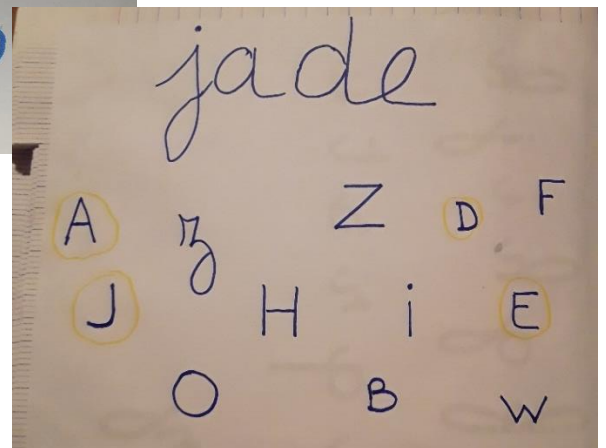 jade
A z Z D F
J H i E
O B W